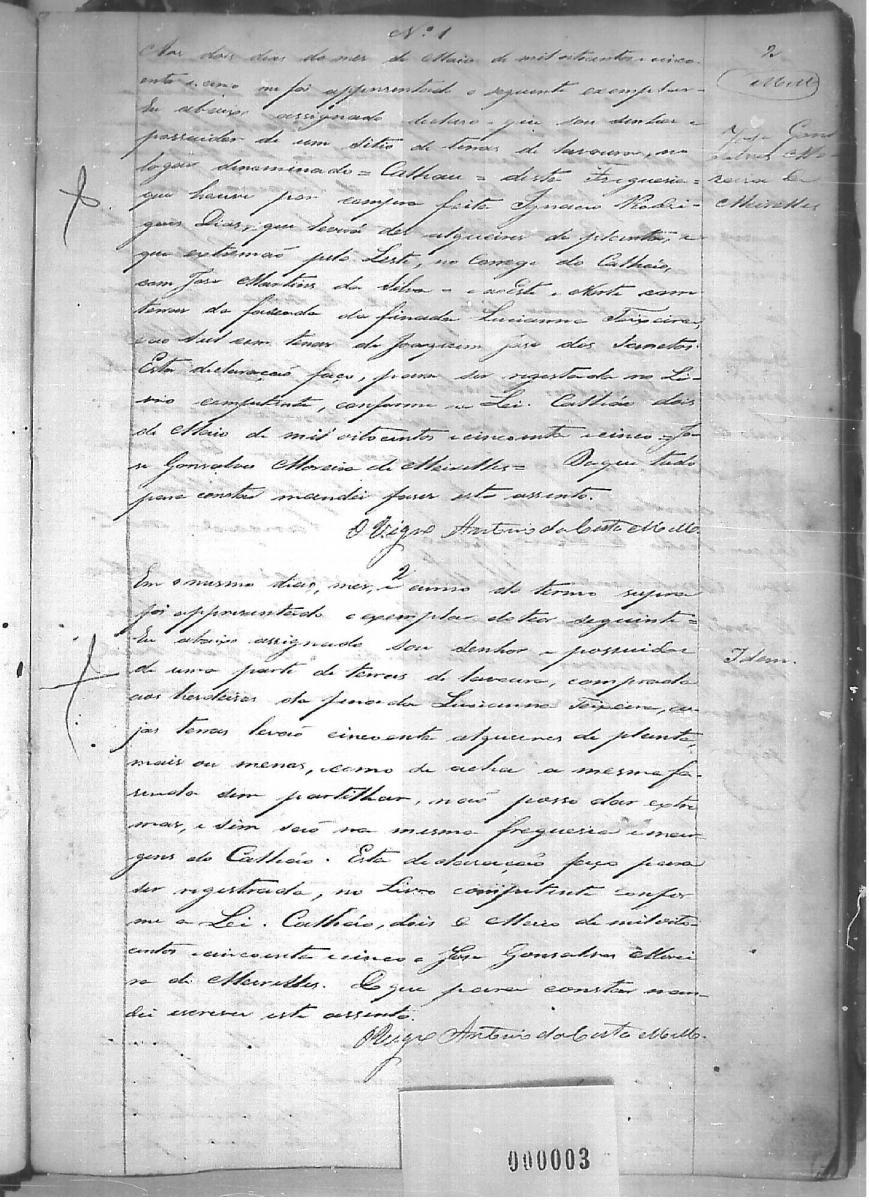 Nº 1
2
Mello
Aos dois dias do mes de Maio de mil oitocentos e cinco-
enta e cinco me foi appresentado o seguinte exemplar =
Eu abaixo assignado declaro que sou senhor e
possuidor de um sitio de terras de lavoura, no
José Gon
salves Mo-
reira de
Meirelles
logar denominado = Calháu = desta Freguesia =
que houve por compra feita Ignacio Rodri-
gues Dias, que levará dez alqueires de planta, e
que extremão pelo Leste, no Corrego do Calháo,
com José Martins da Silva = e oéste e Norte com
terras da fasenda da finada Lucianna Teixeira,
e ao Sul com terras de Joaquim José dos Santos.
Esta declaração faço, para ser registada no Li-
vro competente, conforme a Lei. Calháo dois
de Maio de mil oitocentos e cincoenta e cinco = Jo-
se Gonsalves Moreira de Meirelles = Do que tudo
para constar mandei faser este assento.
O Vigrº Antonio da Costa Mello.
2
Em o mesmo dia, mes, e anno do termo supra
foi appresentado o exemplar do teor seguinte =
Eu abaixo assignado sou senhor e possuidor
Idem.
de uma parte de terras de lavoura, comprada
aos herdeiros da finada Lucianna Teixeira, cu-
jas terras levão cincoenta alqueires de planta,
mais ou menos, e como se acha a mesma fa-
senda sem partilhar, não posso dar extre
mas, e sim são na mesma freguesia e mar
gens do Calháo. Esta declaração faço para
ser registrada, no Livro competente confor
me a Lei. Calháo, dois de Maio de mil oito-
centos e cincoenta e cinco = José Gonsalves Morei
ra de Meirelles. E que para constar man-
dei escrever este assento.
O Vigrº Antonio da Costa Mello.
000003